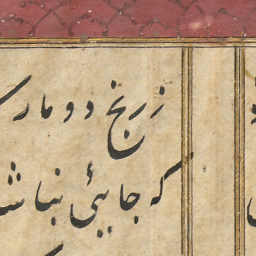 ز رنج دو مار
که جایئی نباشد